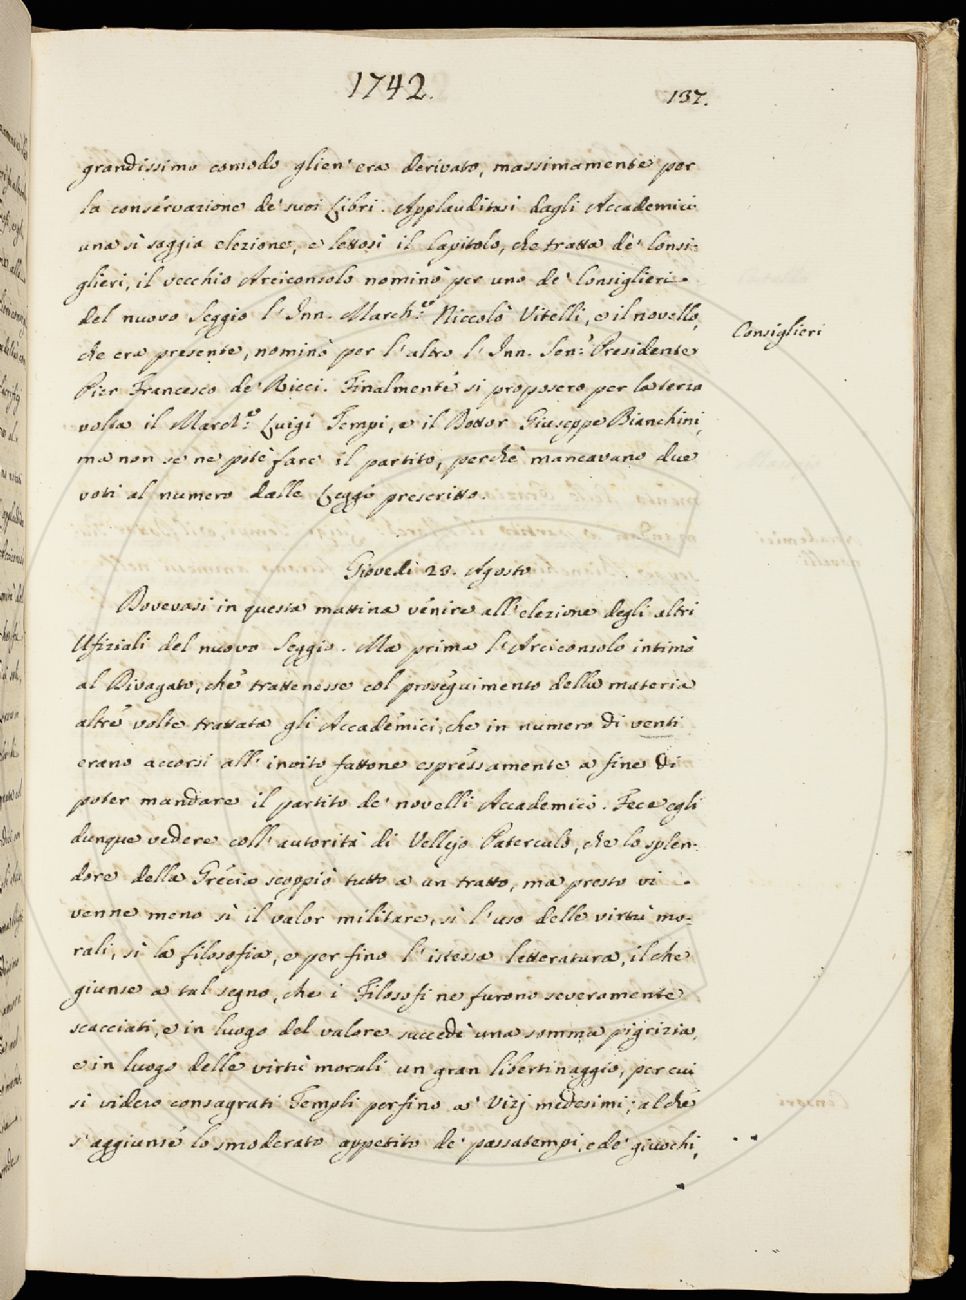 1742.
137.
grandissimo comodo glien' era derivato, massimamente per
la conservazione de' suoi Libri. Applauditasi dagli Accademici
una sì saggia elezione, e lettosi il Capitolo, che tratta de' Consi-
glieri, il vecchio Arciconsolo nominò per uno de' Consiglieri
del nuovo Seggio l'Inn. March.e Niccolò Vitelli, e il novello,
Consiglieri
che era presente, nominò per l'altro l'Inn. Sen.e Presidente
Pier Francesco de' Ricci. Finalmente si proposero per la terza
volta il March.e Luigi Tempi, e il Dottor Giuseppe Bianchini,
ma non se ne potè fare il partito, perchè mancavano due
voti al numero dalle Leggi prescritto.
Giovedì 23. Agosto
Dovevasi in questa mattina venire all'elezione degli altri
Ufiziali del nuovo Seggio. Ma prima l'Arciconsolo intimò
al Divagato, che trattenesse col proseguimento della materia
altre volte trattata gli Accademici, che in numero di venti
erano accorsi all'invito fattone espressamente a fine di
poter mandare il partito de' novelli Accademici. Fece egli
dunque vedere coll'autorità di Vellejo Patercolo, che lo splen-
dore della Grecia scoppiò tutto a un tratto, ma presto vi
venne meno sì il valor militare, sì l'uso delle virtù mo-
rali, sì la filosofia, e per fino l'istessa letteratura, il che
giunse a tal segno, che i Filosofi ne furono severamente
scacciati, e in luogo del valore succedè una somma pigrizia,
e in luogo delle virtù morali un gran libertinaggio, per cui
si videro consagrati Templi perfino a' Vizj medesimi; al che
s'aggiunse lo smoderato appetito de' passatempi, e de' giuochi,